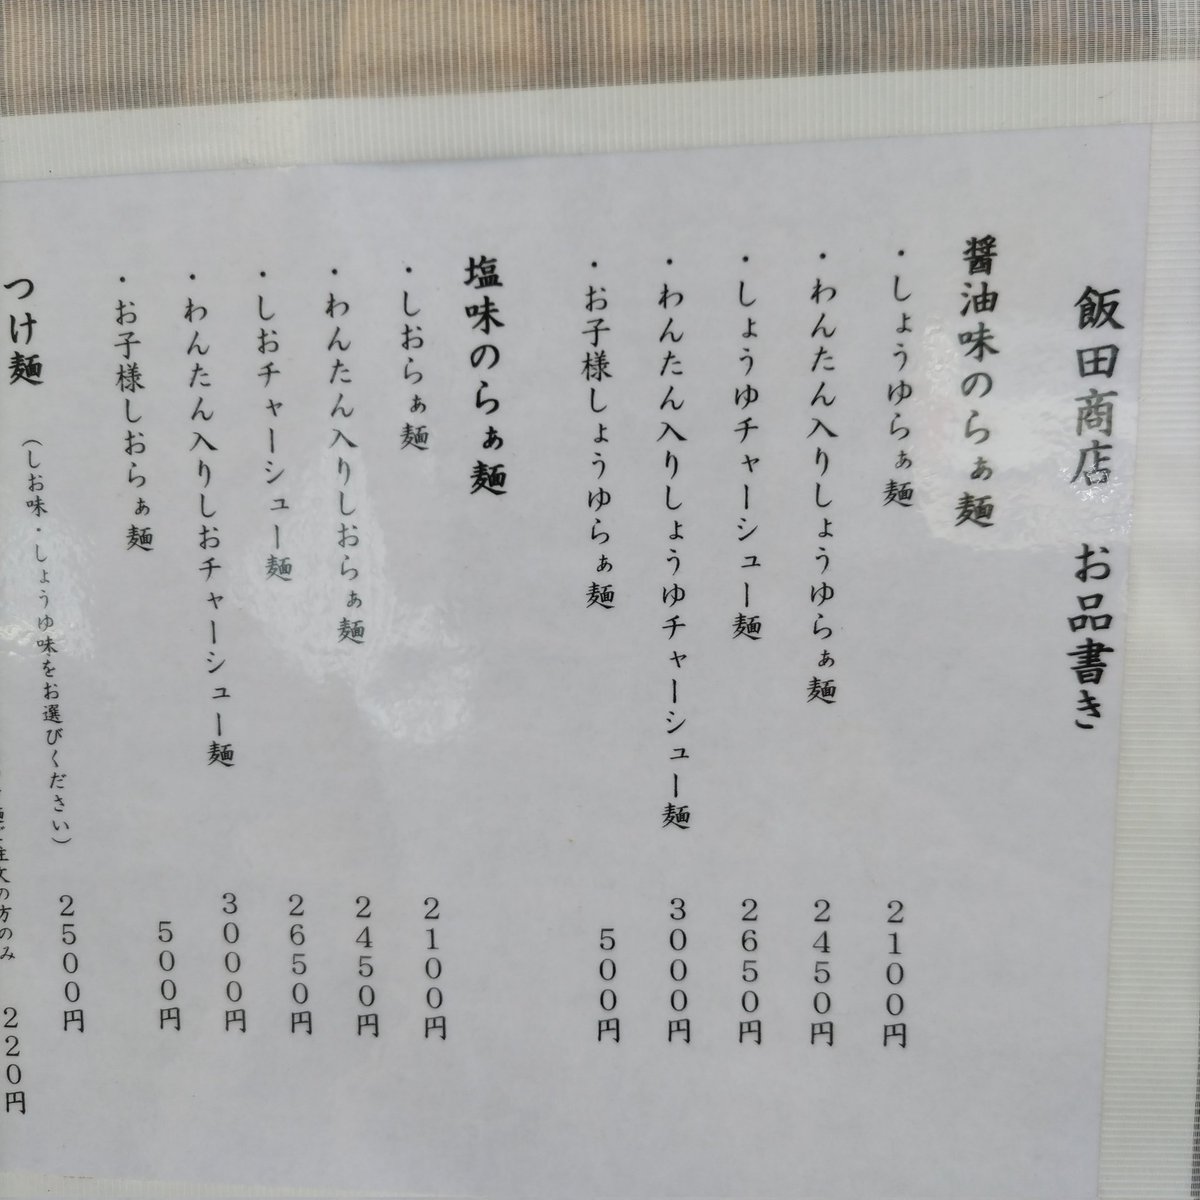 飯田商店 お品書き
醤油味のらぁ麺
・しょうゆらぁ麺 2100円
・わんたん入りしょうゆらぁ麺 2450円
・しょうゆチャーシュー麺 2650円
・わんたん入りしょうゆチャーシュー麺 3000円
・お子様しょうゆらぁ麺 500円
塩味のらぁ麺
・しおらぁ麺 2100円
・わんたん入りしおらぁ麺 2450円
・しおチャーシュー麺 2650円
・わんたん入りしおチャーシュー麺 3000円
・お子様しおらぁ麺 500円
つけ麺 (しお味・しょうゆ味をお選びください) 2500円
注文の方のみ 220円